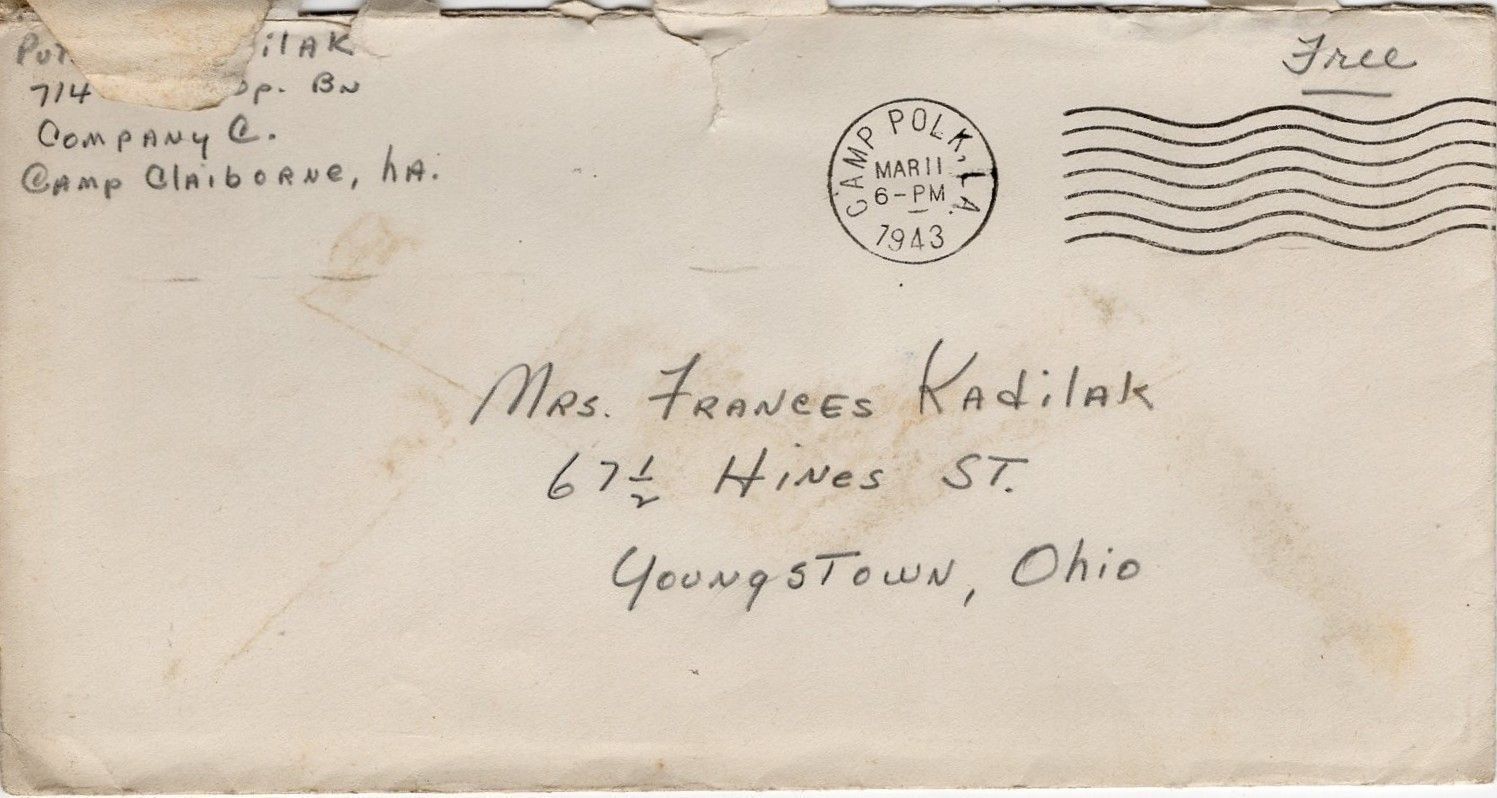 Pvt. ilak
714 Op. Bn
Company C.
Camp Claiborne, La.
Free
CAMP POLK, LA.
MAR 11
6-PM
1943
Mrs. Frances Kadilak
67 1/2 Hines St.
Youngstown, Ohio